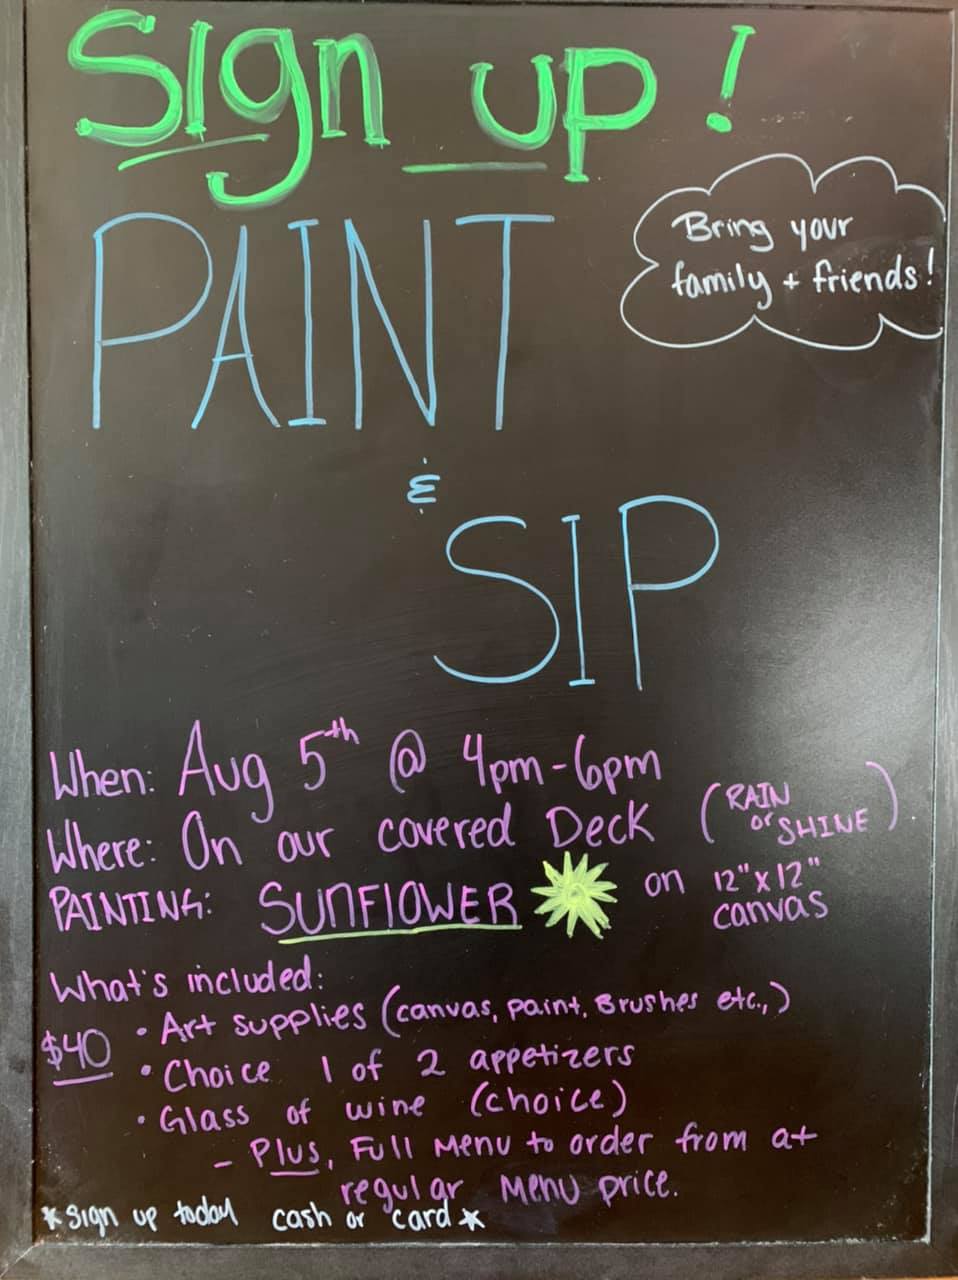 Sign up!
PAINT
Bring your
family + friends!
&
SIP
When: Aug 5th @ 4pm-6pm
Where: On our covered Deck (RAIN or SHINE)
PAINTING: SUNFLOWER on 12"x12" canvas
What's included:
$40
• Art supplies (canvas, paint, Brushes etc.,)
• Choice 1 of 2 appetizers
• Glass of wine (choice)
- Plus, Full Menu to order from at
regular Menu price.
*sign up today cash or card*